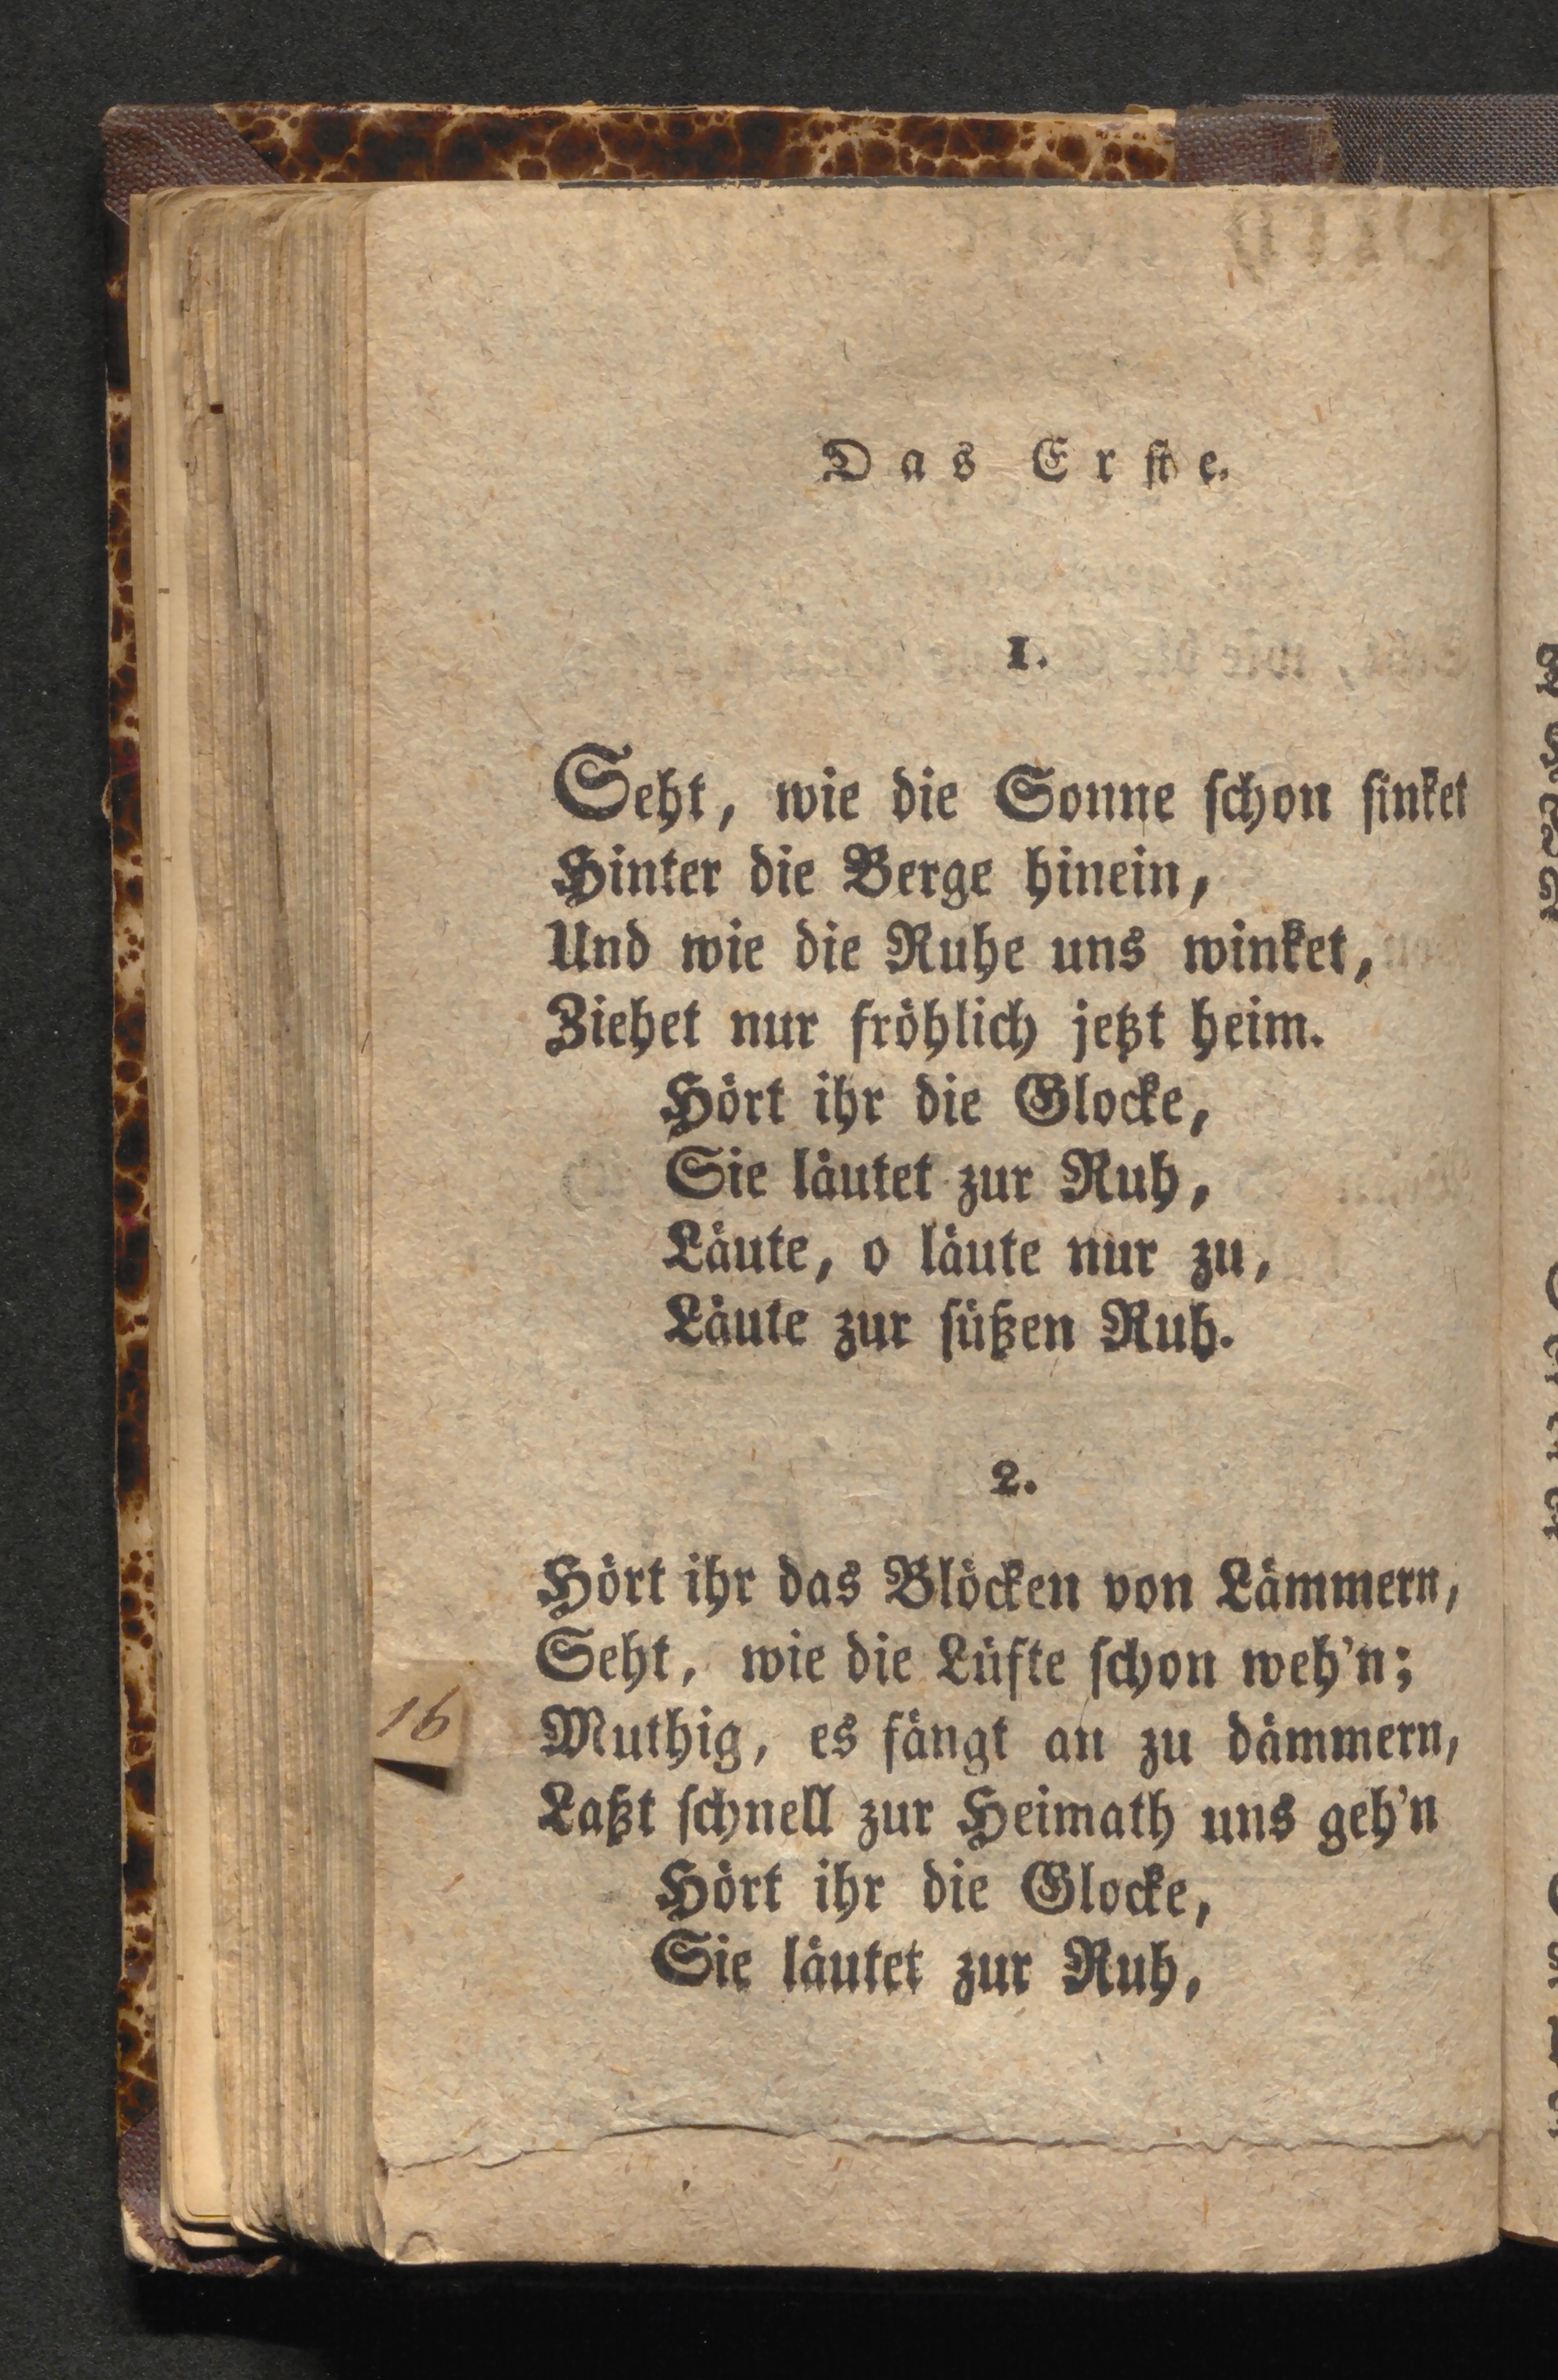 Das Erſte.
1.
Seht, wie die Sonne ſchon ſinket
Hinter die Berge hinein,
Und wie die Ruhe uns winket,
Ziehet nur fröhlich jetzt heim.
Hört ihr die Glocke,
Sie läutet zur Ruh,
Läute, o läute nur zu,
Läute zur ſüßen Ruh.
2.
Hört ihr das Blöcken von Lämmern,
Seht, wie die Lüfte ſchon weh'n;
Muthig, es fängt an zu dämmern,
Laßt ſchnell zur Heimath uns geh'n
Hört ihr die Glocke,
Sie läutet zur Ruh,
16